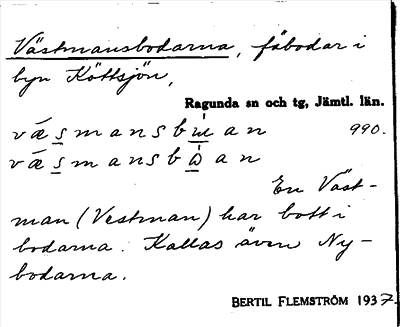 Västmansbodarna, fäbodar i
byn Köttsjön,
Ragunda sn och tg, Jämtl. län.
væ̀smansbɯ́an 990.
væ̀smansbɷ̀an
En Väst-
man (Vestman) har bott i
bodarna. Kallas även Ny-
bodarna.
BERTIL FLEMSTRÖM 1937.